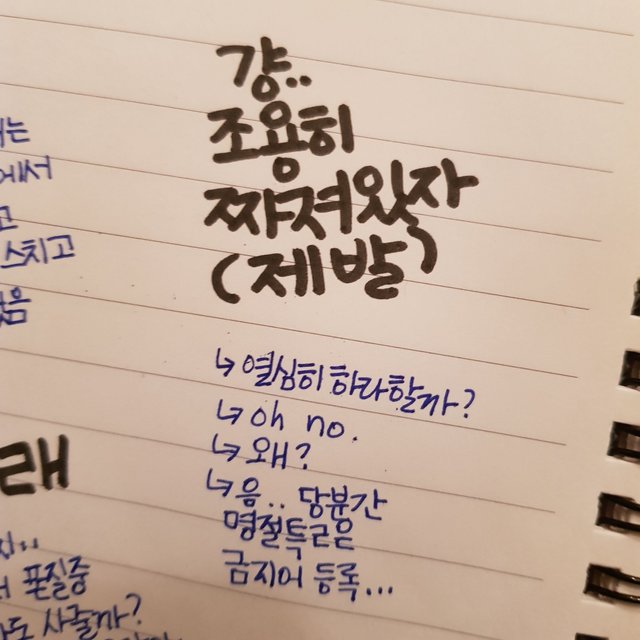 걍..
조용히
짜져있자
(제발)
↳ 열심히 하라할까?
↳ oh no.
↳ 왜?
↳ 음.. 당분간
금지어 등록...
는
에서
고
스치고
음
래
사줄까?